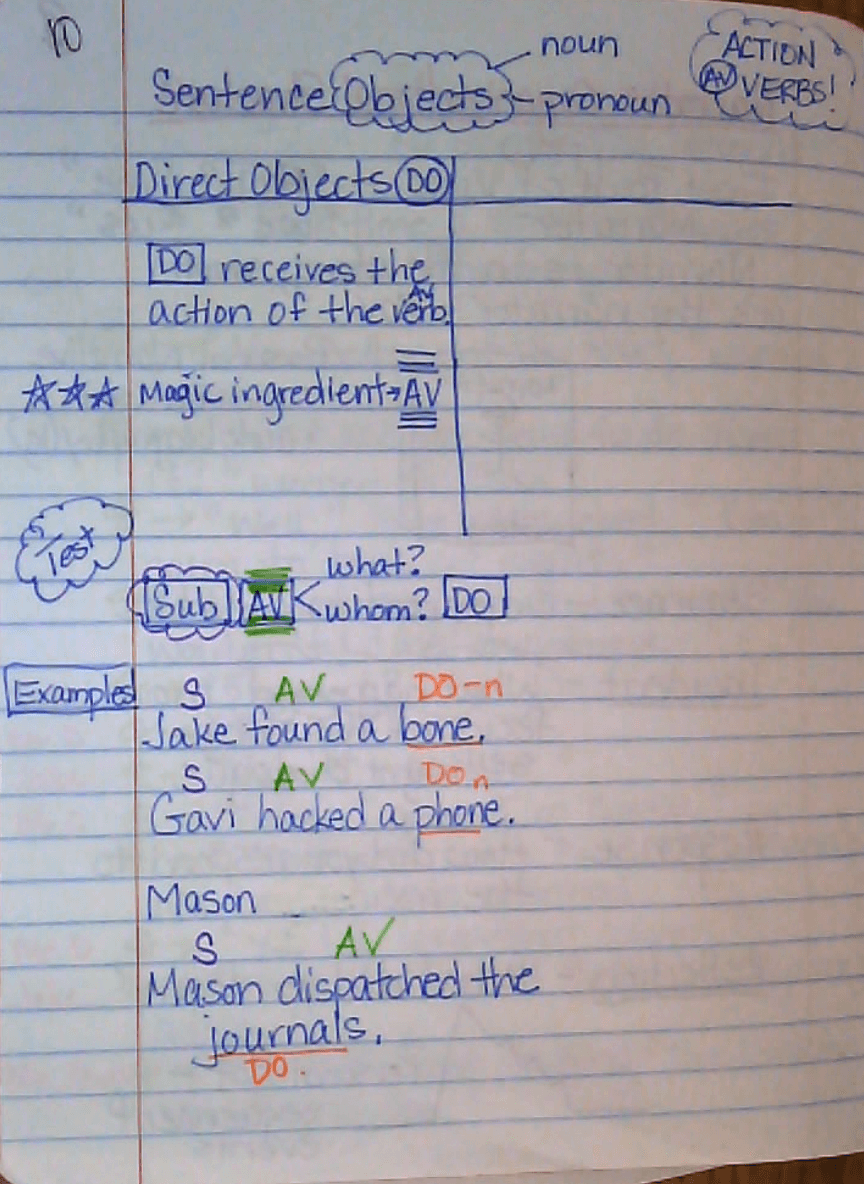 10
noun
ACTION
Sentence Objects
AV VERBS!
pronoun
Direct Objects DO
DO receives the
AV
action of the verb.
Magic ingredient→AV
Test
what?
Sub AV
whom? DO
Examples S AV DO-n
Jake found a bone.
S AV DO n
Gavi hacked a phone.
Mason
S AV
Mason dispatched the
journals.
DO.